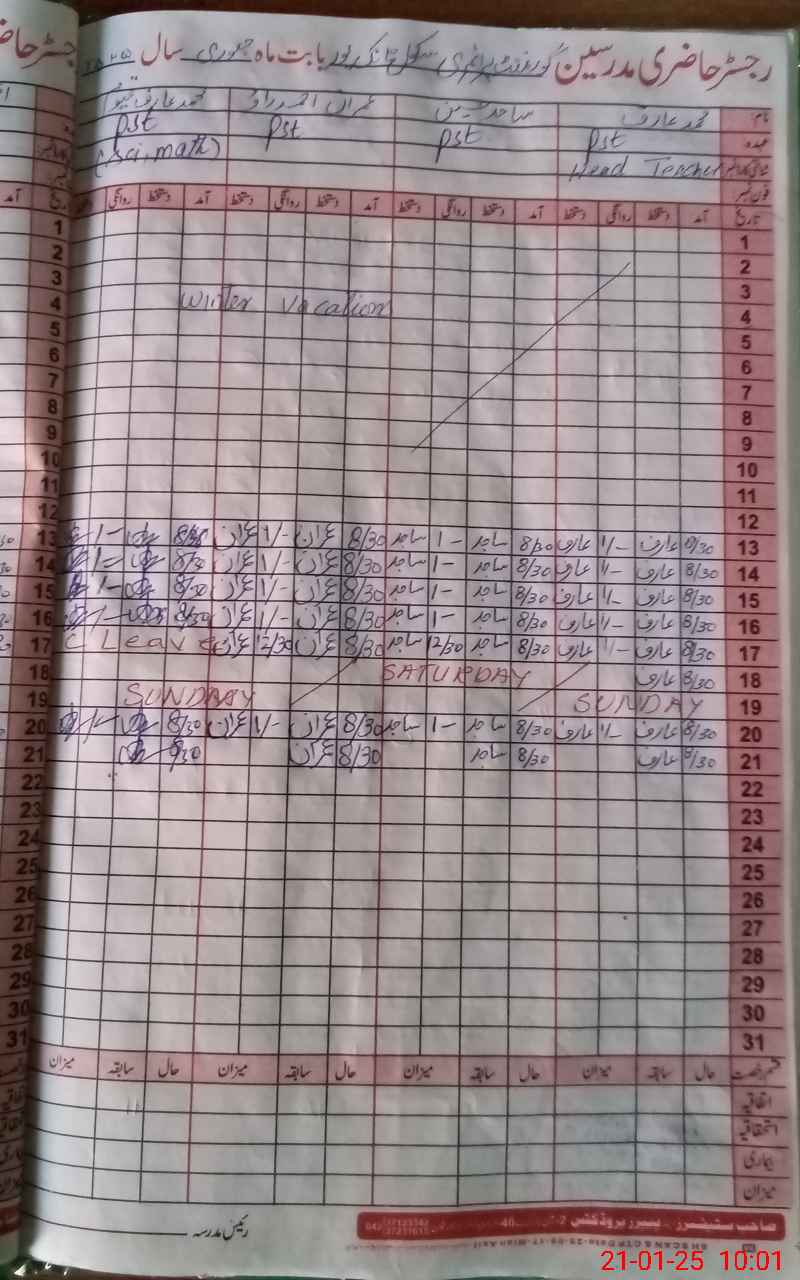 رجسٹر حاضری مدرسین گورنمنٹ پرائمری سکول بابت ماہ جنوری سال ۲۰۲۵
نام: محمد عارف ساجد حسین عمران احمد محمد عارف
عہدہ Pst Pst Pst Pst
Head Teacher (Sci, math)
فون نمبر
تاریخ آمد دستخط روانگی دستخط آمد دستخط روانگی دستخط آمد دستخط روانگی دستخط آمد دستخط روانگی دستخط تاریخ
1 1
2 2
3 3
4 Winter Vacation 4
5 5
6 6
7 7
8 8
9 9
10 10
11 11
12 12
13 8/30 عارف 1/- عارف 8/30 ساجد 1- ساجد 8/30 عمران 1/- عمران 8/30 1- 13
14 8/30 عارف 1/- عارف 8/30 ساجد 1- ساجد 8/30 عمران 1/- عمران 8/30 1- 14
15 8/30 عارف 1/- عارف 8/30 ساجد 1- ساجد 8/30 عمران 1/- عمران 8/30 1- 15
16 8/30 عارف 1/- عارف 8/30 ساجد 1- ساجد 8/30 عمران 1/- عمران 8/30 1- 16
17 8/30 عارف 1/- عارف 8/30 ساجد 12/30 ساجد 8/30 عمران 12/30 عمران C Leave 17
18 8/30 عارف SATURDAY 18
19 SUNDAY SUNDAAY 19
20 8/30 عارف 1/- عارف 8/30 ساجد 1- ساجد 8/30 عمران 1/- عمران 8/30 1- 20
21 8/30 عارف 8/30 ساجد 8/30 عمران 8/30 21
22 22
23 23
24 24
25 25
26 26
27 27
28 28
29 29
30 30
31 31
قسم رخصت حال سابقہ میزان حال سابقہ میزان حال سابقہ میزان حال سابقہ میزان
اتفاقیہ
استحقاقیہ
بیماری
میزان
رئیس مدرسہ
21-01-25 10:01